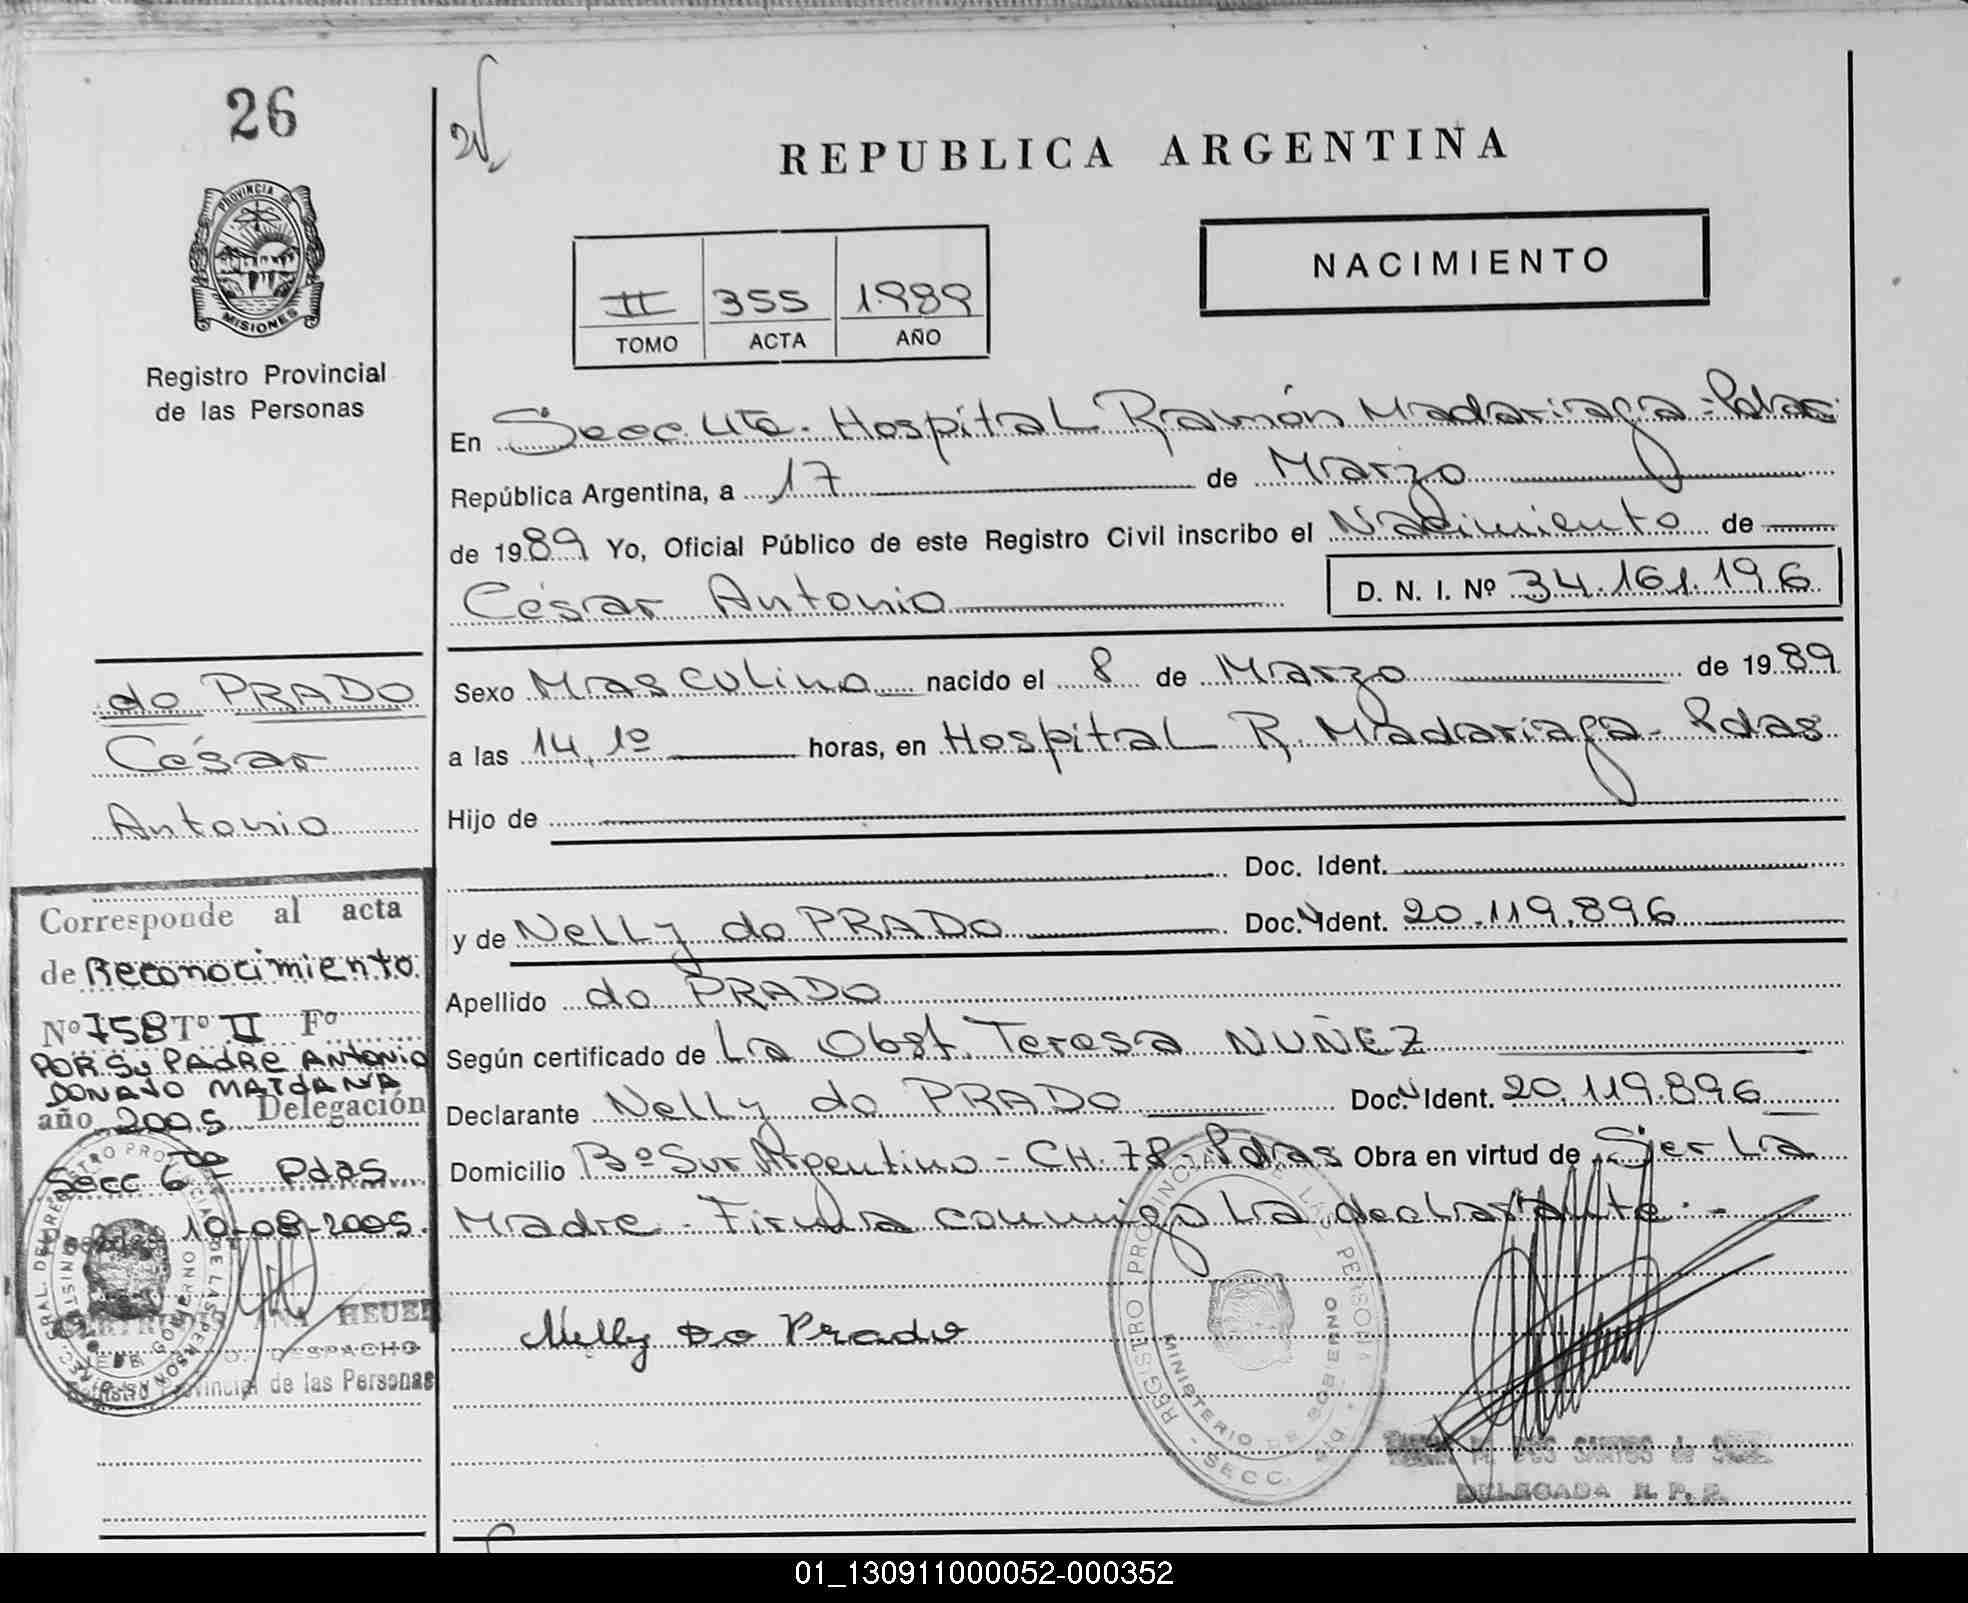 26
PROVINCIA DE
MISIONES
Registro Provincial
de las Personas
REPUBLICA ARGENTINA
NACIMIENTO
II 355 1989
TOMO ACTA AÑO
En Secc. 4ta. Hospital Ramón Madariaga - Pdas.
República Argentina, a 17 de Marzo
de 1989 Yo, Oficial Público de este Registro Civil inscribo el Nacimiento de
César Antonio D. N. I. Nº 34.161.196
do PRADO
César
Antonio
Sexo Masculino nacido el 8 de Marzo de 1989
a las 14,10 horas, en Hospital R. Madariaga - Pdas
Hijo de
Doc. Ident.
y de Nelly do PRADO Doc. N Ident. 20.119.896
Apellido do PRADO
Según certificado de La Obst. Teresa NUÑEZ
Declarante Nelly do PRADO Doc. N Ident. 20.119.896
Domicilio Bº Sur Argentino - CH. 78 - Pdas Obra en virtud de Ser La
Madre - Firma conmigo La declarante. -
Nelly Do Prado
Corresponde al acta
de Reconocimiento
Nº 758 Tº II Fº
POR Su PADRE ANTONIO
DONATO MAIDANA
año 2005 Delegación
Secc 6ta Pdas
10-08-2005.
HEUER
DESPACHO
Registro Provincial de las Personas
REGISTRO PROVINCIAL DE LAS PERSONAS
MINISTERIO DE GOBIERNO
SECC.
DOS SANTOS de
DELEGADA R. P. P.
01_130911000052-000352